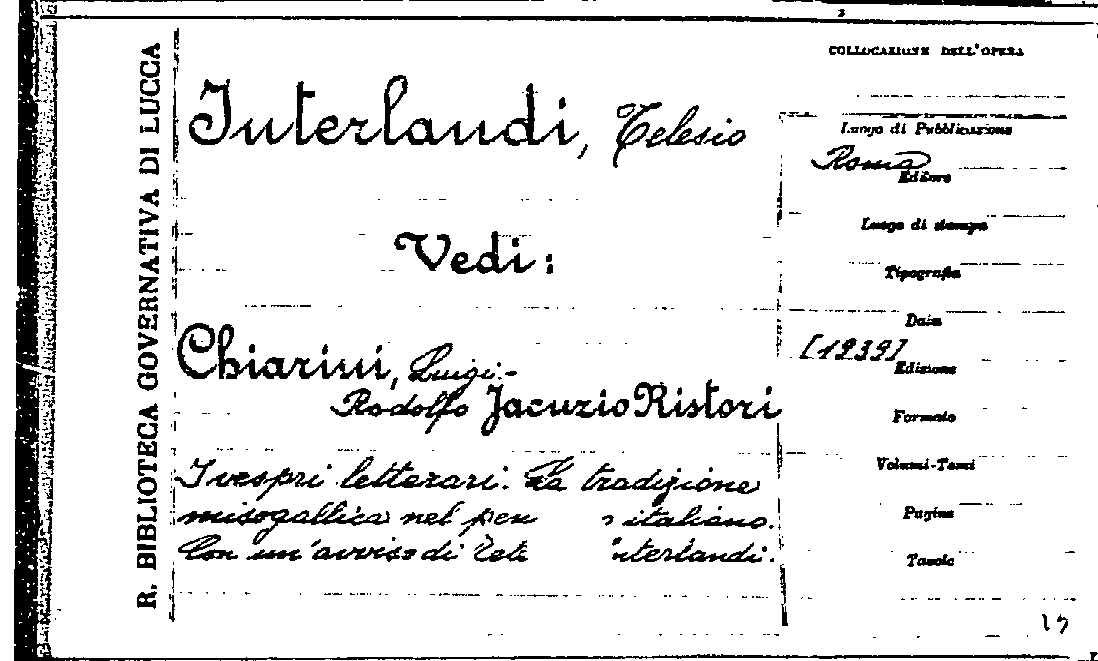 R. BIBLIOTECA GOVERNATIVA DI LUCCA
Interlandi, Telesio
Vedi:
Chiarini, Luigi.-
Rodolfo Jacuzio Ristori
I vespri letterari. La tradizione
misogallica nel pen italiano.
Con un'avviso di Tele nterlandi.
COLLOCAZIONE DELL'OPERA
Luogo di Pubblicazione
Roma
Editore
Luogo di stampa
Tipografia
Data
[1939]
Edizione
Formato
Volumi-Tomi
Pagine
Tavole